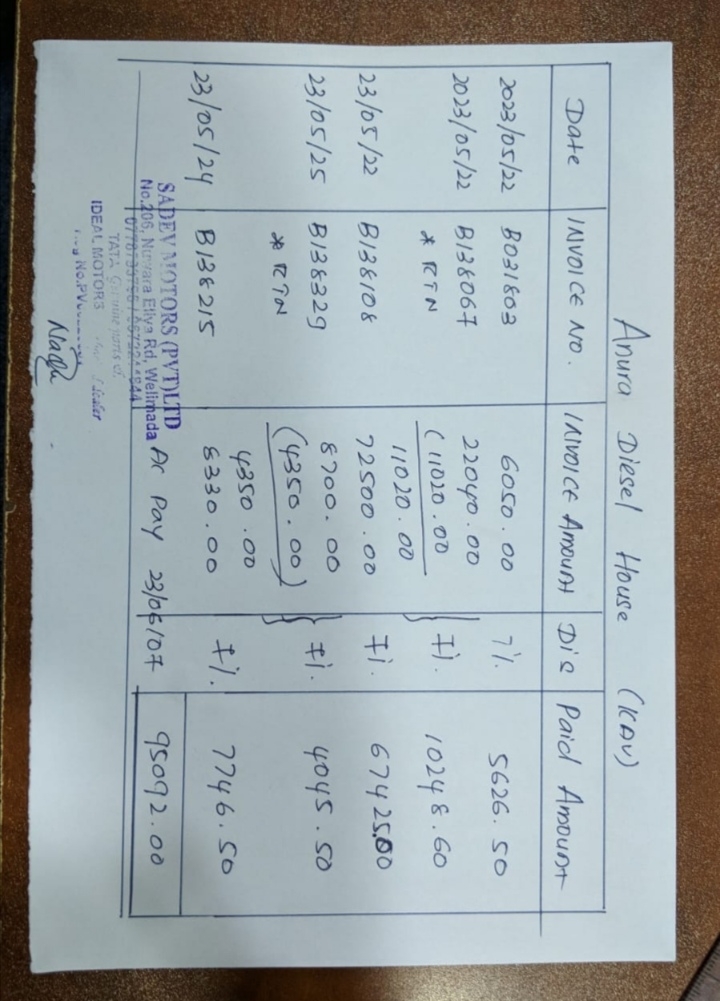 Anura Diesel House (KDV)
Date INVOICE No. INVOICE Amount Dis Paid Amount
2023/05/22 B031803 6050.00 7% 5626.50
2023/05/22 B138067 22040.00 7% 10248.60
* RTN (11020.00
11020.00
23/05/22 B138108 72500.00 7% 67425.00
23/05/25 B138329 8700.00 7% 4045.50
* RTN (4350.00)
4350.00
23/05/24 B138215 8330.00 7% 7746.50
Ac Pay 23/06/07 95092.00
SADEV MOTORS (PVT) LTD
No.206, Nuwara Eliya Rd, Welimada
TATA Genuine parts
IDEAL MOTORS dealer
No.PV